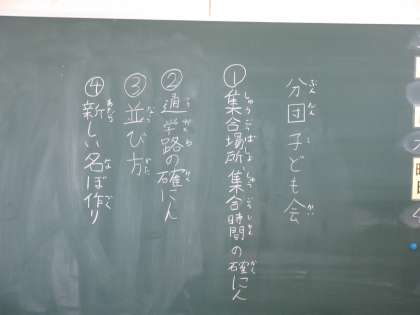 分団子ども会
①集合場所、集合時間の確にん
②通学路の確にん
③並び方
④新しい名ぼ作り